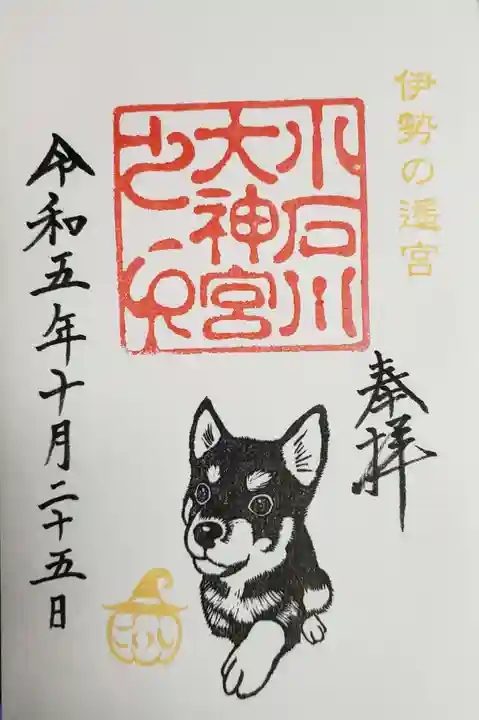 伊勢の遙宮
奉拝
小石川
大神宮
之印
令和五年十月二十五日